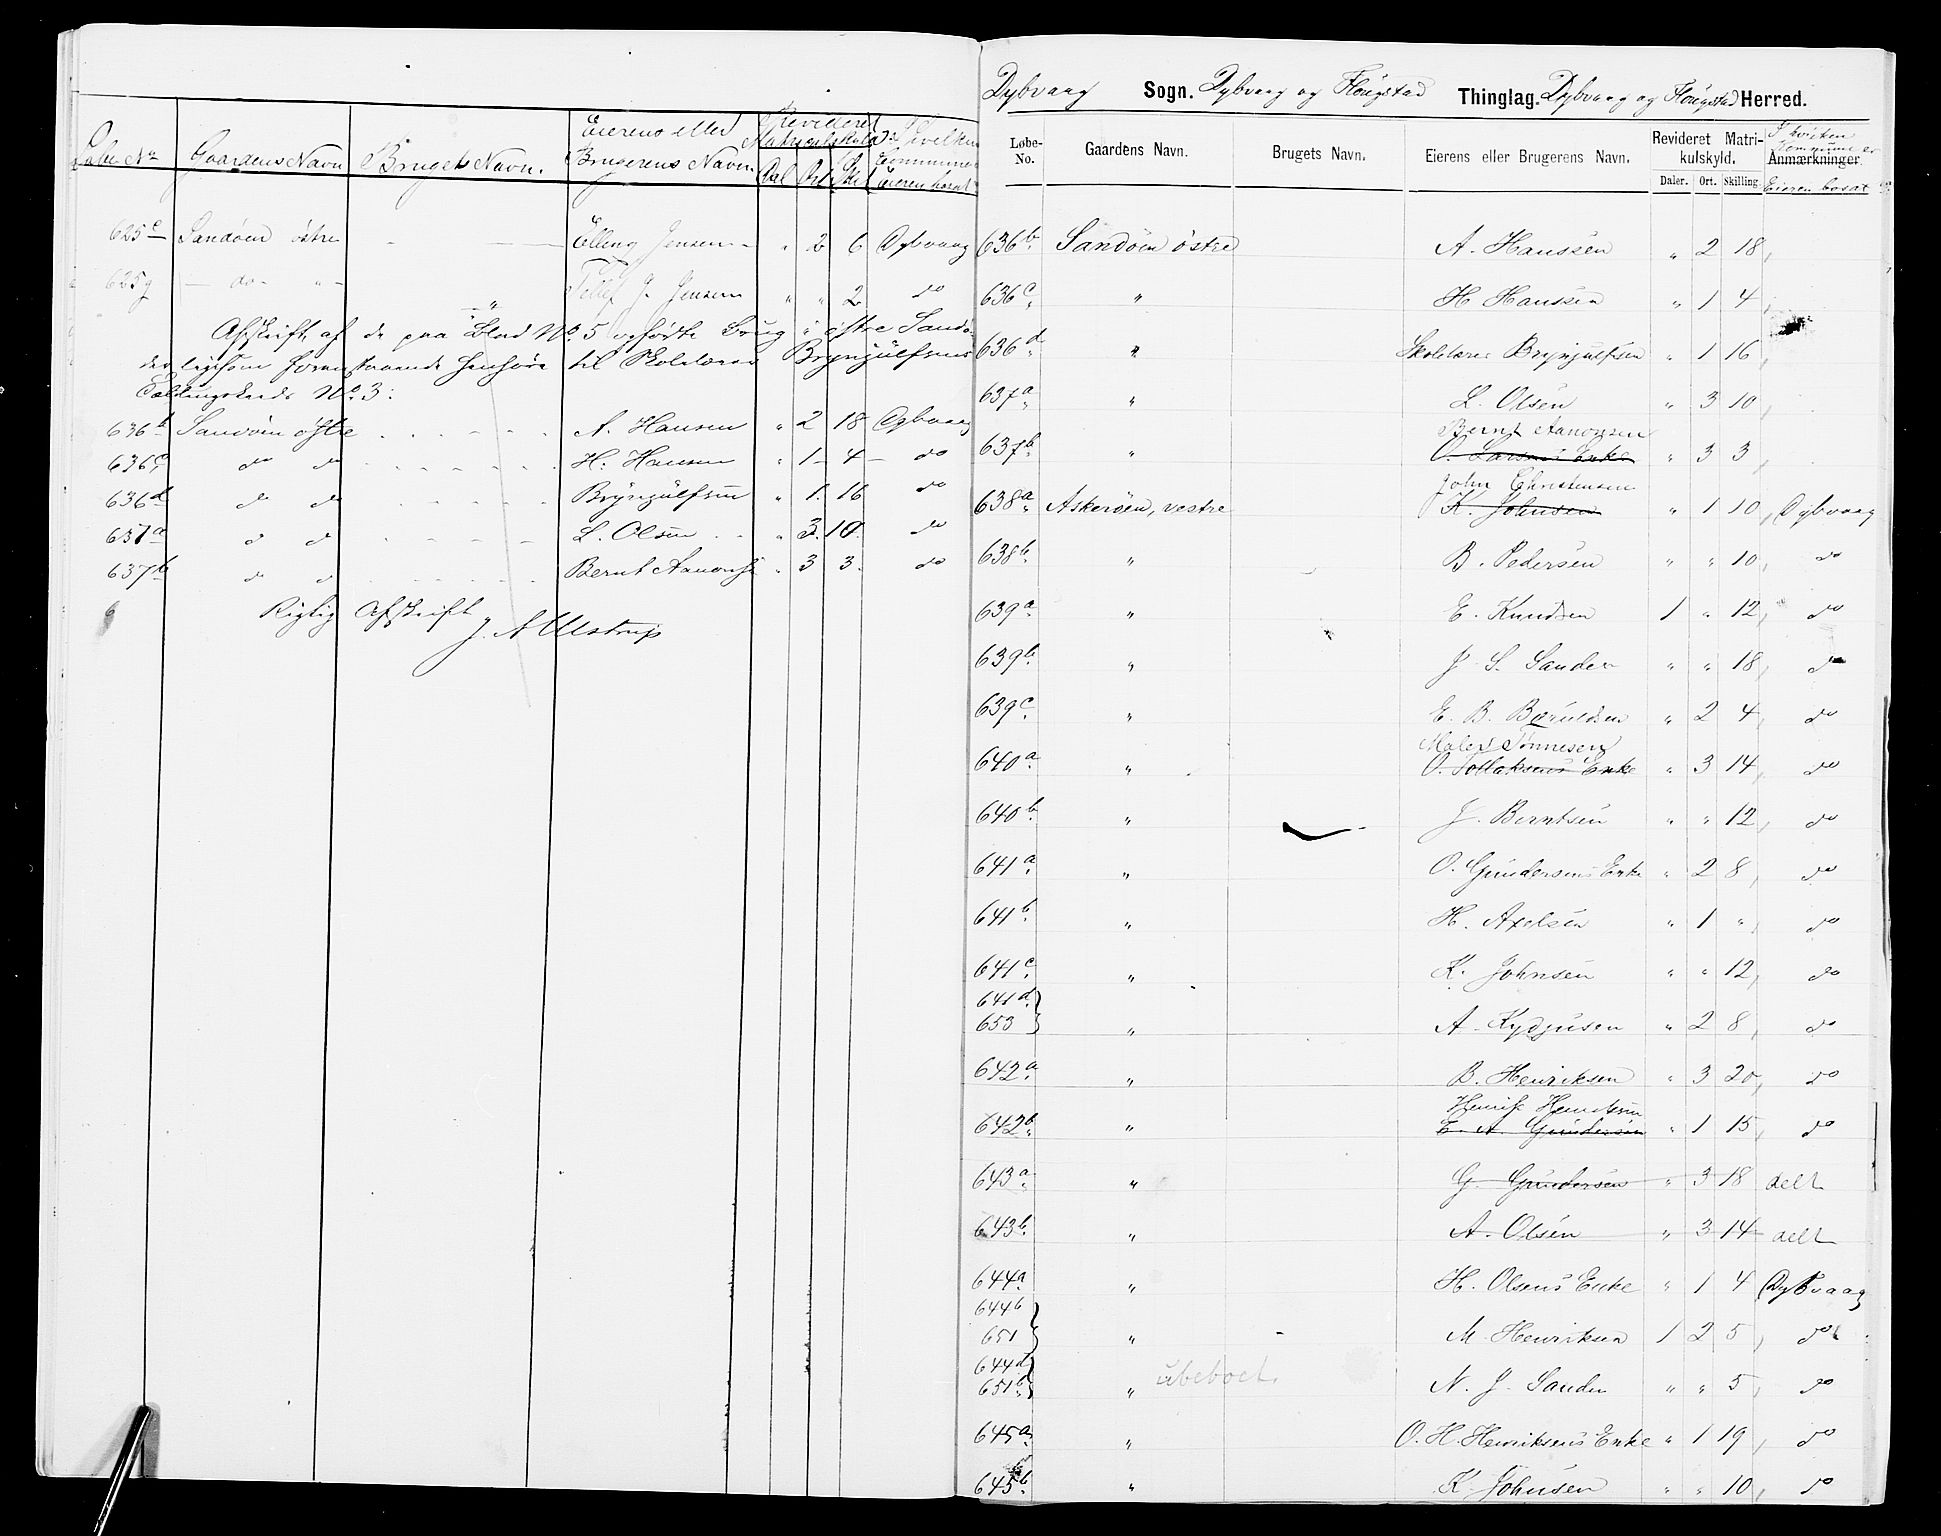 Løbe No Gaardens Navn Brugets Navn. Eierens eller Brugerens Navn Revideret Matrikulskyld Dal Ort Skil I hvilken Commune Eieren bosat
625c Sandøen østre - - Elling Jensen - " 2 6 Dybvaag
625g - do - " - Tellef J. Jensen " " 2 do
Afskrift af de paa Blad No 5 opførte Brug i østre Sandø
der ligesom forenstaaende henhøre til Skolelærer Bryngülfsens
Tællingskreds No 3:
636b Sandøen østre A. Hansen " 2 18 Dybvaag
636c do do H. Hansen " 1 - 4 - do
636d do do Bryngülfsen " 1. 16 do
637a do do L. Olsen " 3. 10. do
637b do do Bernt Aanonse " 3 3. do
Rigtig Afskrift
J. A Ulstrup
Dybvaag Sogn. Dybvaag og Flougstad Thinglag. Dybvaag og Flougstad Herred.
Løbe-No. Gaardens Navn. Brugets Navn. Eierens eller Brugerens Navn. Revideret Matrikulskyld. Daler. Ort. Skilling. Anmærkninger.
I hvilken Kommune er Eieren bosat
636b. Sandøen østre A. Hanssen " 2 18,
636c. " H Hanssen " 1 4,
636d " Skolelærer Bryngülfsen " 1 16,
637a " L. Olsen " 3 10,
Bernt Aanonsen
637b. " O. Larsens Enke " 3 3,
John Christensen
638a. Askerøen, vestre K. Johnsen " 1 10, Dybvaag
638b. " B. Pedersen " " 10, do
639a " E. Knudsen 1 " 12, do
639b. " J. S. Sander " " 18, do
639c. " E. B. Baruldsen " 2 4, do
Tønnesen
640a " O. Tollaksens Enke " 3 14, do
640b. " J. Berntsen " " 12, do
641a " O. Gundersens Enke " 2 8, do
641b. " H. Axelsen " 1 ", do
641c. " K. Johnsen " " 12, do
641d.
653 " A. " 2 8, do
642a. " B. Henriksen " 3 20, do
Henrik
642b. " E. A. Gundersen " 1 15, do
643a " G. Gundersen " 3 18 delt
643b. " A. Olsen " 3 14 delt
644a " H. Olsens Enke " 1 4 Dybvaag
644b
651 " M. Henriksen 1 2 5, do
644d
651b. " ubeboet. N. J. Sanden " " 5, do
645a " O. H. Henriksens Enke " 1 19, do
645b. " K. Johnsen " " 10, do